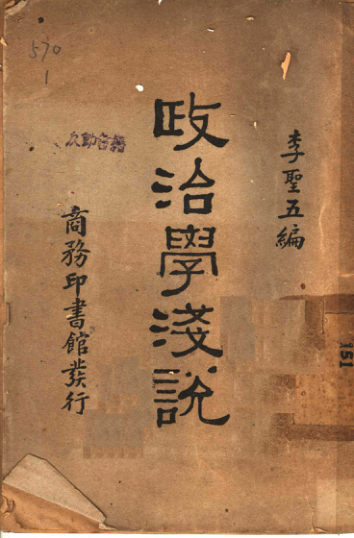 李聖五編
政治學淺說
商務印書館發行
570
1
151